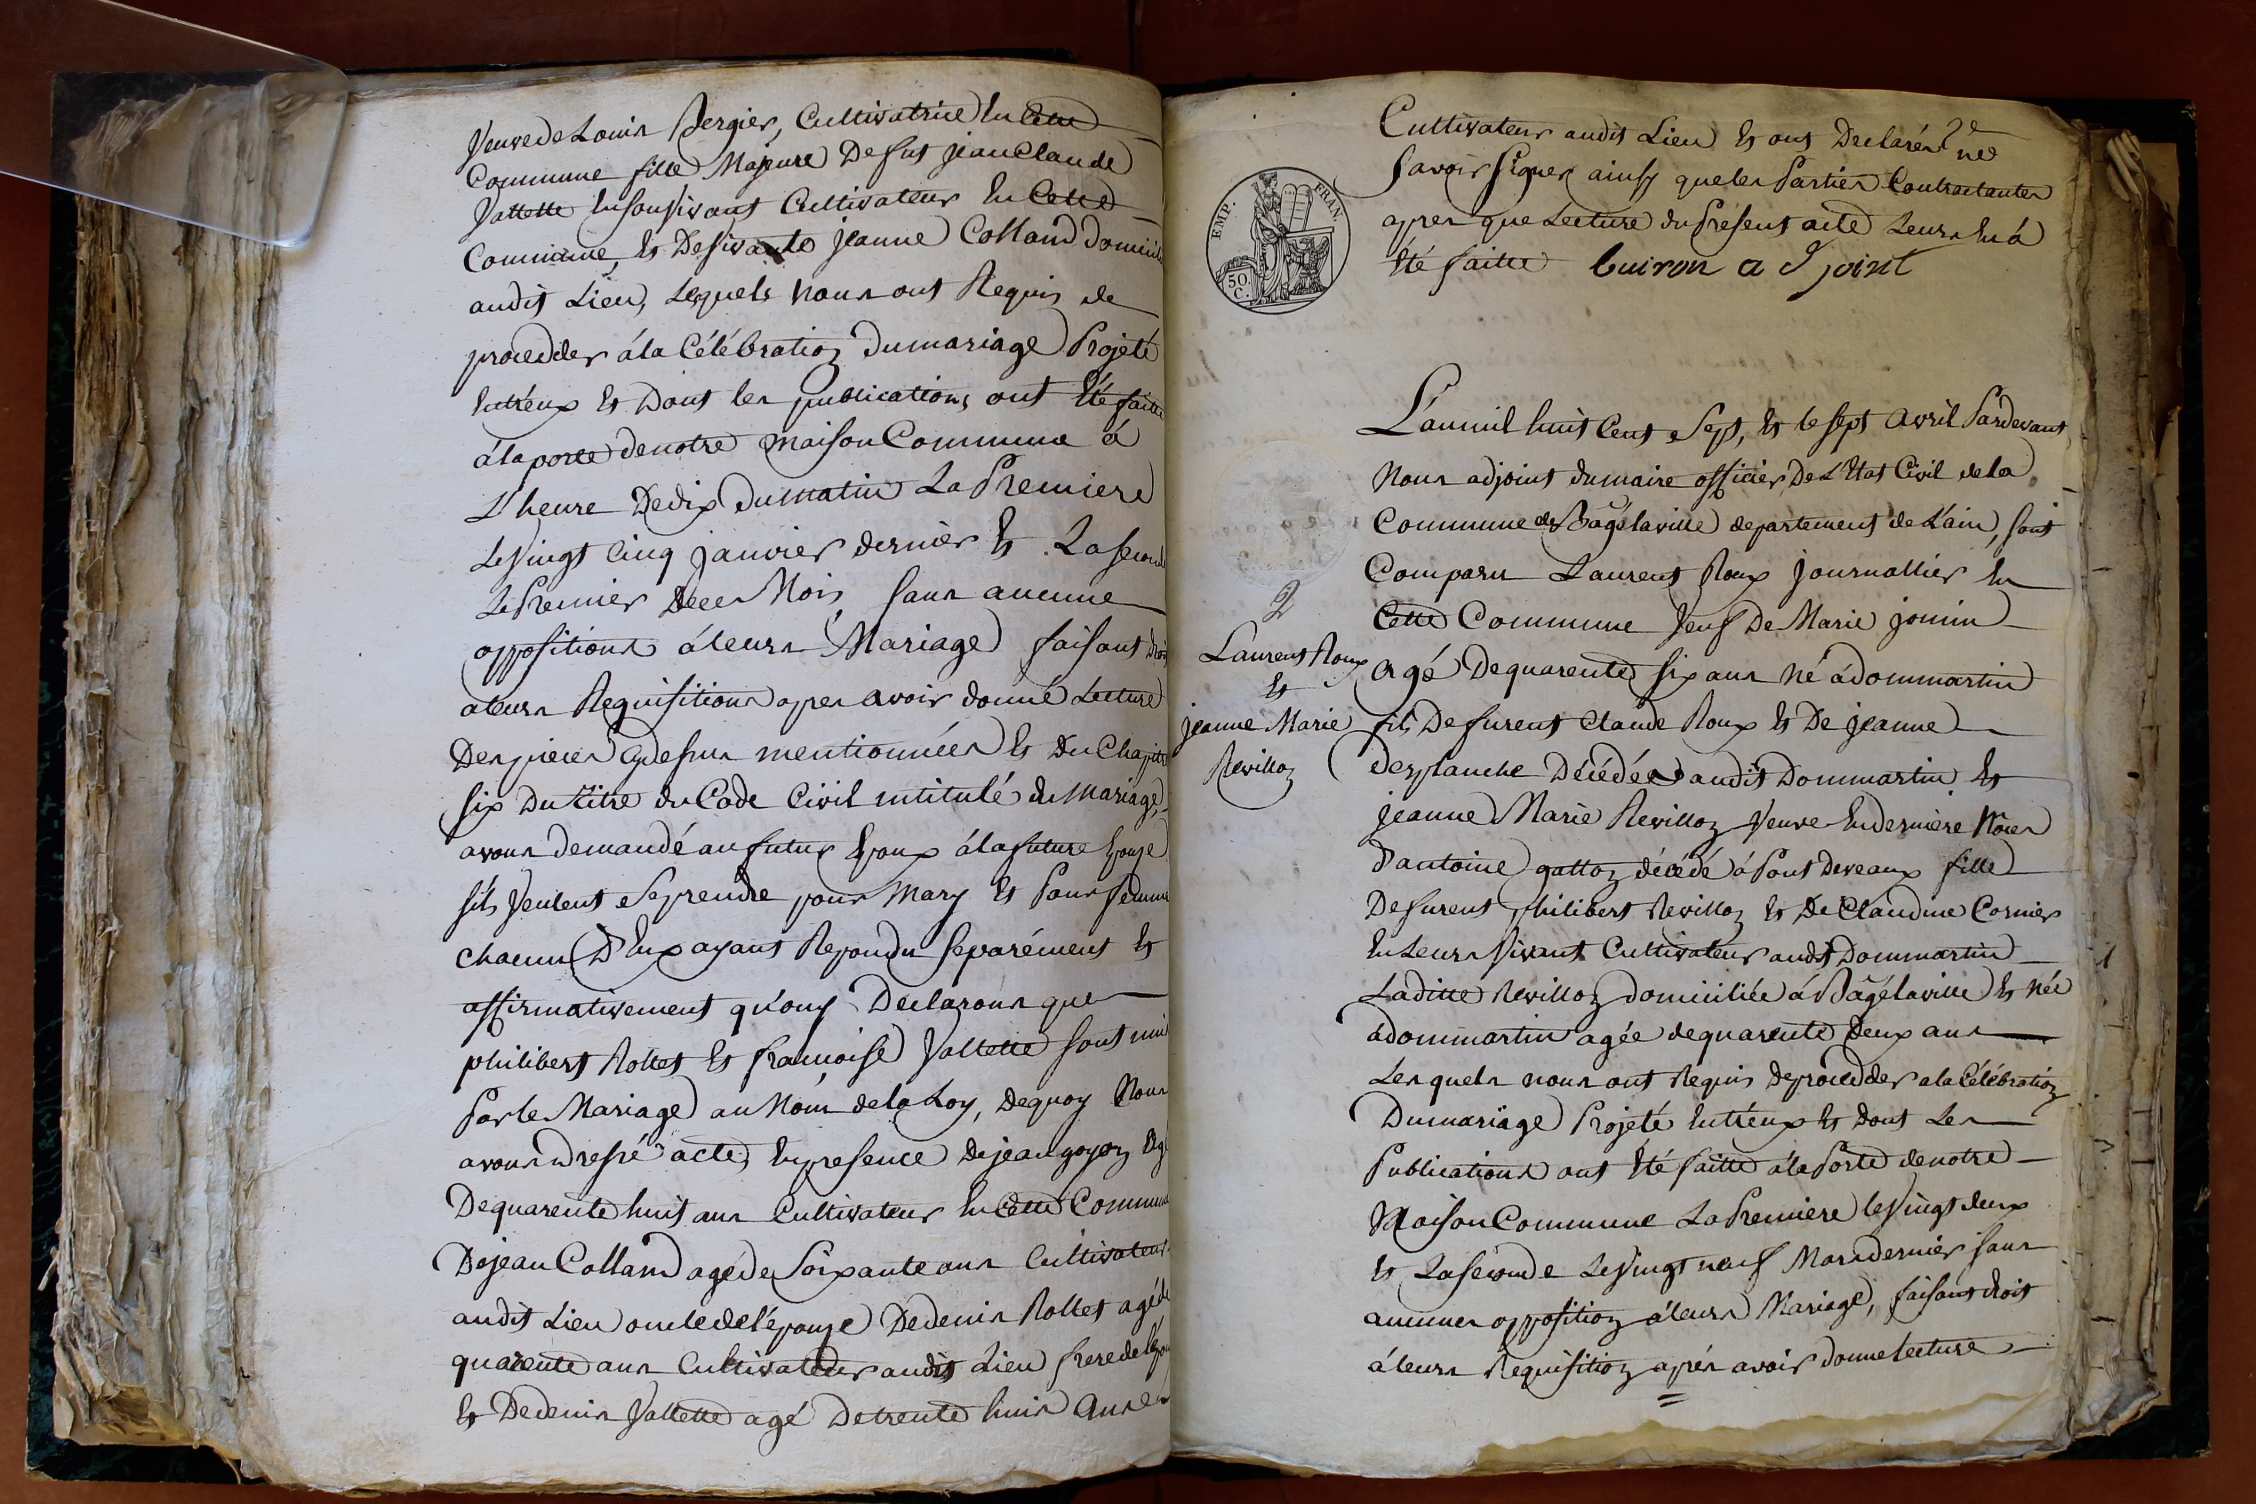 Veuve de Louis Bergier, Cultivatrice En Cette
Commune fille Majeure De fut jean Claude
Vallette En son vivant Cultivateur En Cette
Commune, Et De vivante jeanne Colland domicilié
audit Lieu, Lesquels Nous ont Requis de
procedder á la Célébration du mariage Projeté
Entréux Et Dont les publications ont Eté faitte
á la porte de notre maison Commune á
L'heure De dix du matin La Premiere
Le Vingt Cinq janvier dernier Et La seconde
Le Premier De ce Mois, sans aucune
oppositions á leurs Mariage faisant droit
a leurs Requisitions apres avoir donné Lecture
Des pieces Cydessus mentionnées Et Du Chapitre
six Du titre du Code Civil intitulé du Mariage,
avons demandé au futur Epoux á la future Epouse
s'ils Veulent se prendre pour Mary Et Pour femme
chacun D'Eux ayant Repondu separément Et
affirmativement qu'ouy Declarons que
philibert Rollet Et francoise Vallette sont unis
Par le Mariage au Nom de la Loy, de quoy Nous
avons dressé acte, En presence de jean goyon agé
De quarente huit ans Cultivateur En Cette Commune
De jean Colland agé de Soixante ans Cultivateur
audit Lieu oncle de l'épouse De denis Rollet agé de
quarente ans Cultivateur audit Lieu frere de l'Epoux
Et De denis Vallette agé De trente huit Annes
2e
Cultivateur audit Lieu Et ont Declarés ne
savoir signer ainsy que les Parties Contractantes
apres que Lecture du Présent acte Leurs En á
Eté faitte Cuiron a djoint
EMP. FRAN.
50. C.
L'an mil huit Cent Sept, Et le sept Avril Pardevant
Nous adjoint du maire officier De L'Etat Civil de la
Commune de Bâgélaville departement de L'ain, sont
Comparu Laurent Roux journallier En
Cette Commune Veuf De Marie jomin
agé De quarente six ans Né á dommartin
fils De furent Claude Roux Et De jeanne
desplanche Décédée audit Dommartin Et
jeanne Marie Revillon Veuve En derniere Nôces
D'antoine gatton décédé á Pont Deveaux fille
De furent philibert Revillon Et De Claudine Cornier
En Leurs Vivant Cultivateur audit Dommartin
La ditte Revillon domiciliée á Bâgélaville Et Née
á dommartin agée de quarente Deux ans
Les quels nous ont Requis De procedder a la Célébration
Du mariage Projeté Entréux Et Dont Les
Publications ont Eté faitte á la Porte de notre
Maison Commune La Premiere le Vingt deux
Et La seconde Le Vingt neuf Mars dernier sans
aucunes opposition á leurs Mariage, faisant droit
á leurs Requisition aprés avoir donne lecture
2
Laurent Roux
Et
jeanne Marie
Revillon